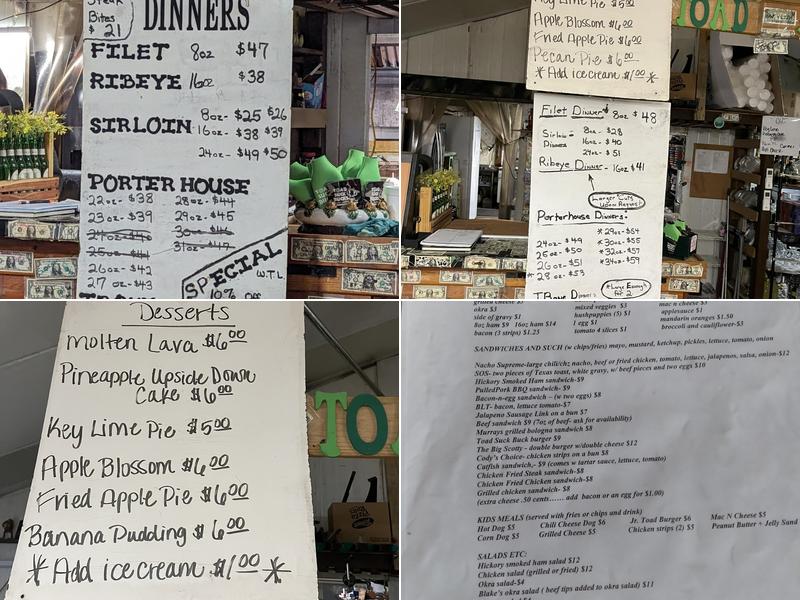 Steak
Bites
$21
DINNERS
FILET 8oz $47
RIBEYE 16oz $38
SIRLOIN 8oz- $25 $26
16oz- $38 $39
24oz- $49 $50
PORTER HOUSE
22oz - $38 28oz - $44
23oz - $39 29oz - $45
24oz - $40 30oz - $46
25oz - $41 31oz - $47
26oz - $42
27 oz - $43
SPECIAL
W.T.L.
10% off
Key Lime Pie $5.00
Apple Blossom $6.00
Fried Apple Pie $6.00
Pecan Pie $6.00
*Add ice cream $1.00*
TOAD
Filet Dinner 8oz $48
Sirloin 8oz - $28
Dinners 16oz - $40
24oz - $51
Ribeye Dinner - 16oz $41
Larger Cuts
Upon Request
Porterhouse Dinners:
*29oz - $54
24oz - $49 *30oz - $55
25oz - $50 *32oz - $57
26oz - $51 *34oz - $59
28oz - $53
*Large Enough
for 2
TBone Dinners
Desserts
Molten Lava $6.00
Pineapple Upside Down
Cake $6.00
Key Lime Pie $5.00
Apple Blossom $6.00
Fried Apple Pie $6.00
Banana Pudding $6.00
*Add ice cream $1.00*
TO
grilled cheese $5 mixed veggies $3 mac n cheese $3
okra $3 hushpuppies (5) $1 applesauce $1
side of gravy $1 1 egg $1 mandarin oranges $1.50
8oz ham $9 16oz ham $14 tomato 4 slices $1 broccoli and cauliflower-$3
bacon (3 strips) $1.25
SANDWICHES AND SUCH (w chips/fries) mayo, mustard, ketchup, pickles, lettuce, tomato, onion
Nacho Supreme-large chili/chz nacho, beef or fried chicken, tomato, lettuce, jalapenos, salsa, onion-$12
SOS- two pieces of Texas toast, white gravy, w/ beef pieces and two eggs $10
Hickory Smoked Ham sandwich-$9
PulledPork BBQ sandwich- $9
Bacon-n-egg sandwich – (w two eggs) $8
BLT- bacon, lettuce tomato-$7
Jalapeno Sausage Link on a bun $7
Beef sandwich $9 (7oz of beef- ask for availability)
Murrays grilled bologna sandwich $8
Toad Suck Buck burger $9
The Big Scotty - double burger w/double cheese $12
Cody's Choice- chicken strips on a bun $8
Catfish sandwich,- $9 (comes w tartar sauce, lettuce, tomato)
Chicken Fried Steak sandwich-$8
Chicken Fried Chicken sandwich-$8
Grilled chicken sandwich- $8
(extra cheese .50 cents…… add bacon or an egg for $1.00)
KIDS MEALS (served with fries or chips and drink)
Hot Dog $5 Chili Cheese Dog $6 Jr. Toad Burger $6 Mac N Cheese $5
Corn Dog $5 Grilled Cheese $5 Chicken strips (2) $5 Peanut Butter + Jelly Sand
SALADS ETC:
Hickory smoked ham salad $12
Chicken salad (grilled or fried) $12
Okra salad-$4
Blake's okra salad ( beef tips added to okra salad) $11